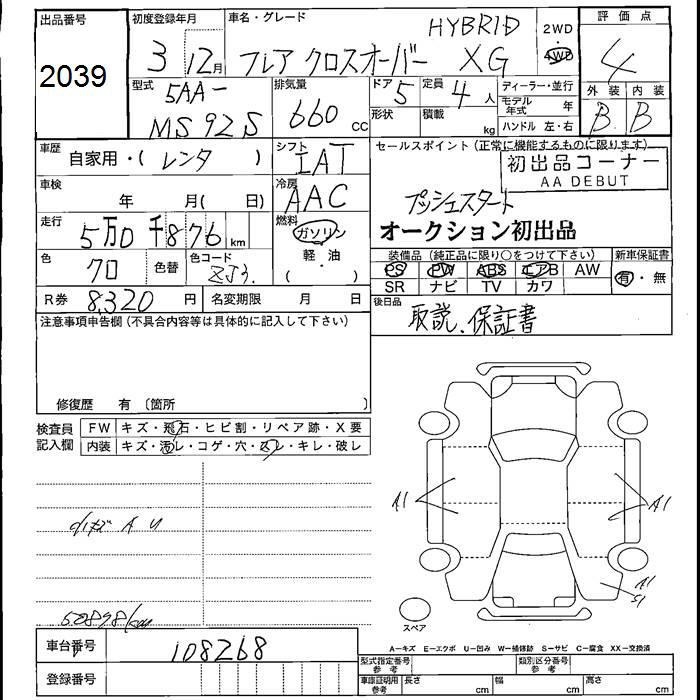 出品番号
2039
初度登録年月
3 12月
車名・グレード
HYBRID
フレア クロスオーバー XG
2WD
4WD
評価点
4
外装 内装
B B
型式
5AA-
MS92S
排気量
660 cc
ドア 5
定員 4人
形状
積載 kg
ディーラー・並行
モデル年式 年
ハンドル 左・右
車歴
自家用・(レンタ )
シフト
IAT
セールスポイント (正常に機能するものに限ります)
初出品コーナー
AA DEBUT
プッシュスタート
オークション初出品
車検
年 月( 日)
冷房
AAC
走行
5万0千876 km
燃料
ガソリン
軽・油
( )
色
70
色替
色コード
ZJ3
装備品 (純正品に限り○をつけて下さい)
PS PW ABS エアB AW
SR ナビ TV カワ
新車保証書
有・無
R券 8,320円
名変期限 月 日
後日品
取説、保証書
注意事項申告欄 (不具合内容等は具体的に記入して下さい)
修復歴 有 〔箇所 〕
検査員記入欄
FW キズ・飛石・ヒビ割・リペア跡・X要
内装 キズ・汚レ・コゲ・穴・スレ・キレ・破レ
小キズ A U
50898/km
A1
A1
A1
S1
スペア
A-キズ E-エクボ U-凹み W-補修跡 S-サビ C-腐食 XX-交換済
車台番号 108268
登録番号
型式指定番号 参考
類別区分番号 参考
車庫証明用 参考
長さ cm
幅 cm
高さ cm